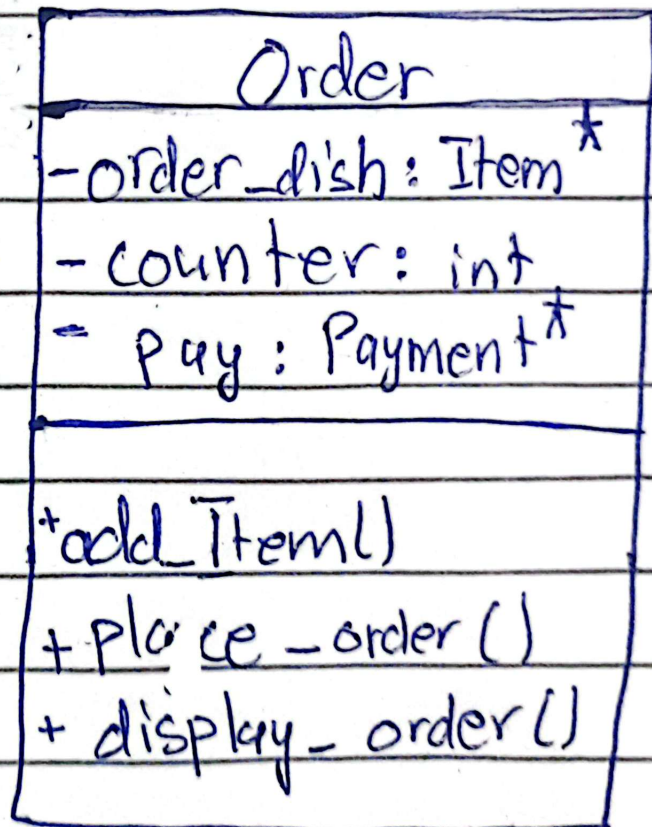 Order
-order_dish: Item*
- counter: int
- pay: Payment*
+add_Item()
+ place_order()
+ display_order()